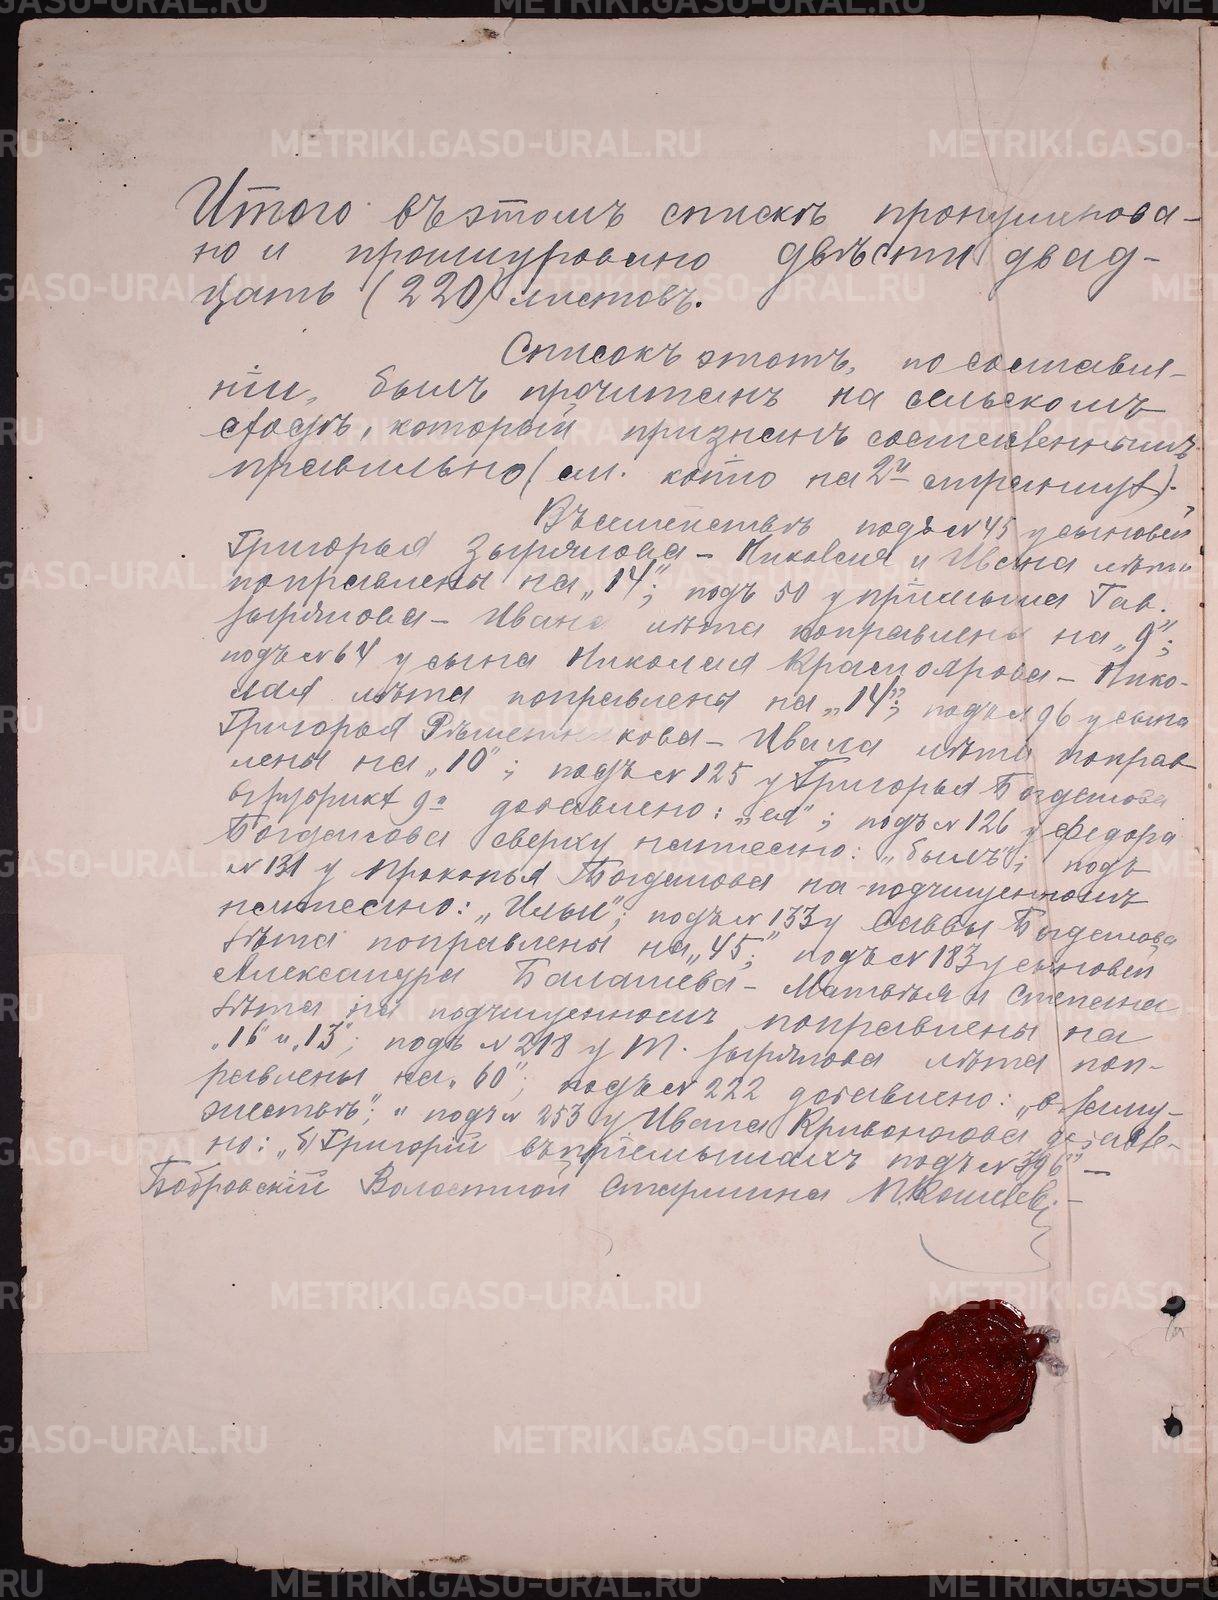 Итого въ этомъ спискѣ пронумерова-
но и прошнуровано двѣсти двад-
цать (220) листовъ.
Списокъ этотъ, по составле-
ніи, былъ прочитанъ на сельскомъ
сходѣ, который признанъ составленнымъ
правильно (см. на 2й страницѣ).
Въ семействѣ подъ № 45 у сыновей
Григорья Зырянова – Николая и Ивана лѣта
поправлены на „14"; подъ 50 у пріемыша Гав.
Зырянова – Ивана лѣта поправлены на „9";
подъ № 64 у сына Николая Красноярова – Нико-
лая лѣта поправлены на „14"; подъ № 96 у сына
Григорья Рѣшетникова – Ивана лѣта поправ
лены на „10"; подъ № 125 у Григорья Богданова
въ рубрикѣ 9й добавлено: „ея"; подъ № 126 у Федора
Богданова сверху написано: „былъ"; подъ
№ 131 у Прокопья Богданова на подчищенномъ
написано: „Ильи"; подъ № 133 у Саввы Богданова
лѣта поправлены на „45"; подъ № 183 у сыновей
Александра Балашева – Матвѣя и Степана
лѣта на подчищенномъ поправлены на
„16" и „13"; подъ № 218 у Т. Зырянова лѣта поп-
равлены на „60"; подъ № 222 добавлено: „въ заму-
жествѣ"; и подъ № 253 у Ивана Кривоногова добавле-
но: „Григорій въ пріемышахъ подъ № 396" –
Бобровскій Волостной Старшина
METRIKI.GASO-URAL.RU